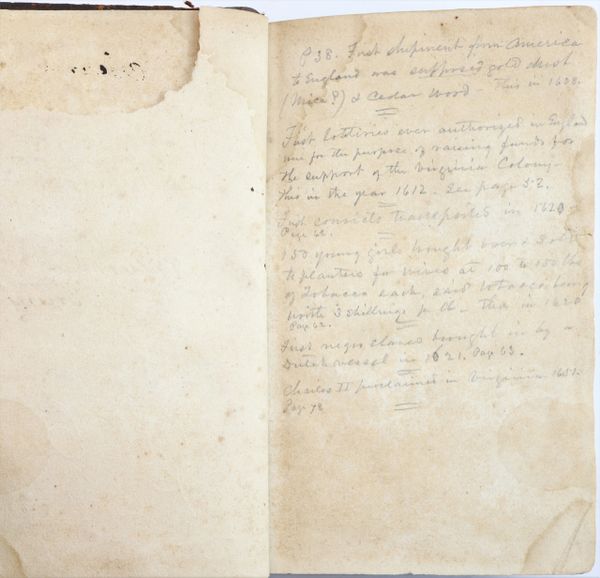 P 38. First shipment from America
to England was supposed gold dust
(Mica?) & Cedar Wood - This in 1608.
First lotteries ever authorized in England
was for the purpose of raising funds for
the support of the Virginia Colony-
This in the year 1612. See page 52.
First convicts transported in 1620-
Page 62.
150 young girls brought over & sold
to planters for wives at 100 to 150 lbs
of Tobacco each, said tobacco being
worth 3 shillings pr lb - This in 1620
Page 62.
First negro slaves brought in by a
Dutch vessel in 1621. Page 63.
Charles II proclaimed in Virginia 1651.
Page 78